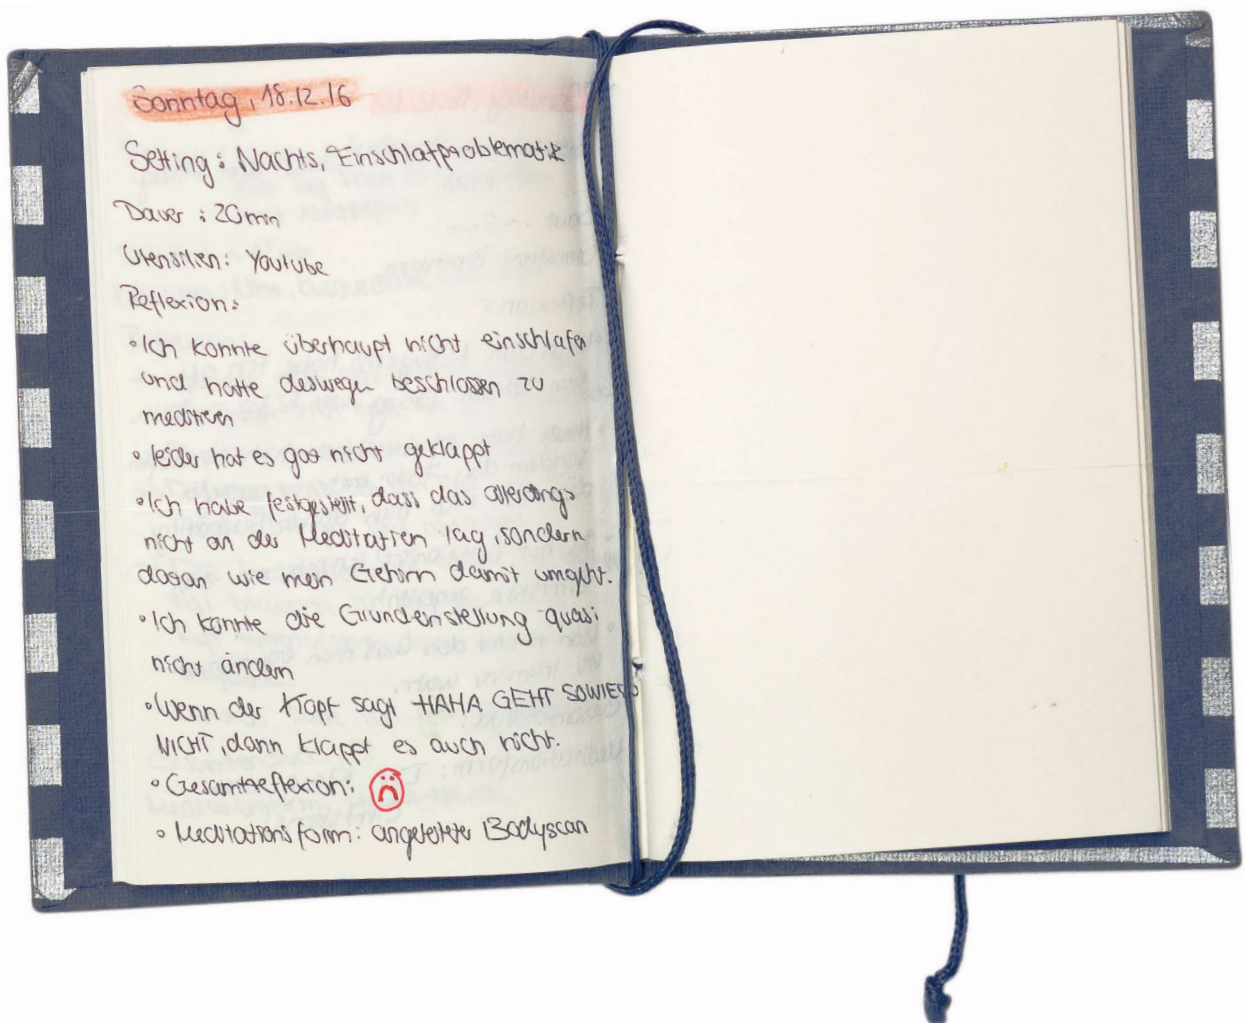 Sonntag, 18.12.16
Setting: Nachts, Einschlafproblematik
Dauer: 20min
Utensilien: Youtube
Reflexion:
• Ich konnte überhaupt nicht einschlafen
und hatte deswegen beschlossen zu
meditieren
• leider hat es gar nicht geklappt
• Ich habe festgestellt, dass das allerdings
nicht an der Meditation lag, sondern
daran wie mein Gehirn damit umgeht.
• Ich konnte die Grundeinstellung quasi
nicht ändern
• Wenn der Kopf sagt HAHA GEHT SOWIESO
NICHT, dann klappt es auch nicht.
• Gesamtreflexion:
• Meditationsform: angeleiteter Bodyscan